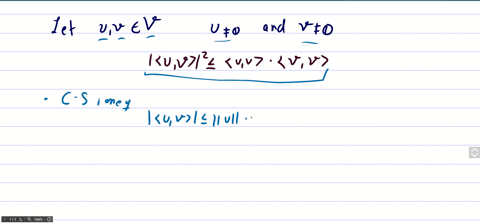 Let u, v ∈ V u ≠ 0 and v ≠ 0
|<u,v>|² ≤ <u,u> · <v,v>
• C-S ineq
|<u,v>| ≤ ||u|| ··